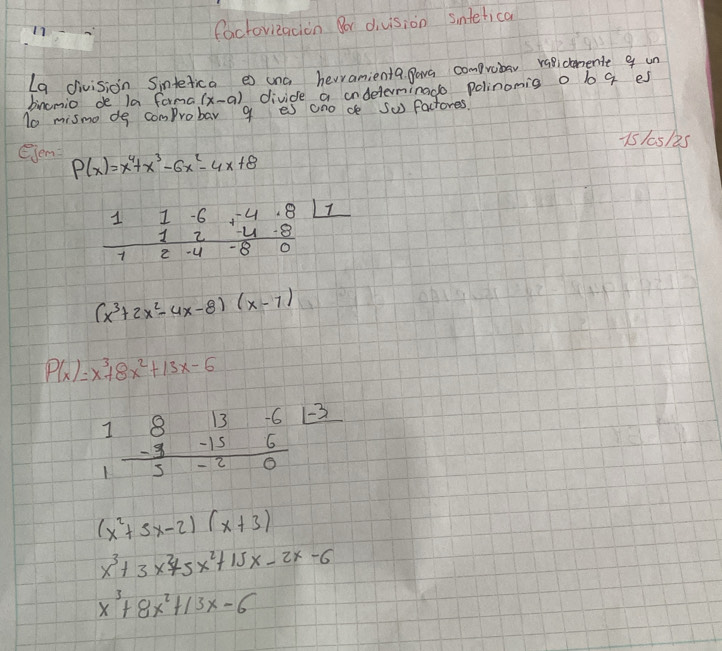 Factorización Por división sintetica
La división Sintetica es una herramienta para comprobar rapidamente q un
binomio de la forma (x-a) divide a un determinado polinomio o b q es
lo mismo de comprobar q es uno de sus factores.
15/05/25
Ejem:
P(x)=x⁴+x³-6x²-4x+8
1 1 -6 +-4 .8 |1
1 2 -4 -8
1 2 -4 -8 0
(x³+2x²-4x-8) (x-1)
P(x)=x³+8x²+13x-6
1 8 13 -6 |-3
-3 -15 6
1 5 -2 0
(x²+5x-2) (x+3)
x³+3x²+5x²+15x-2x-6
x³+8x²+13x-6